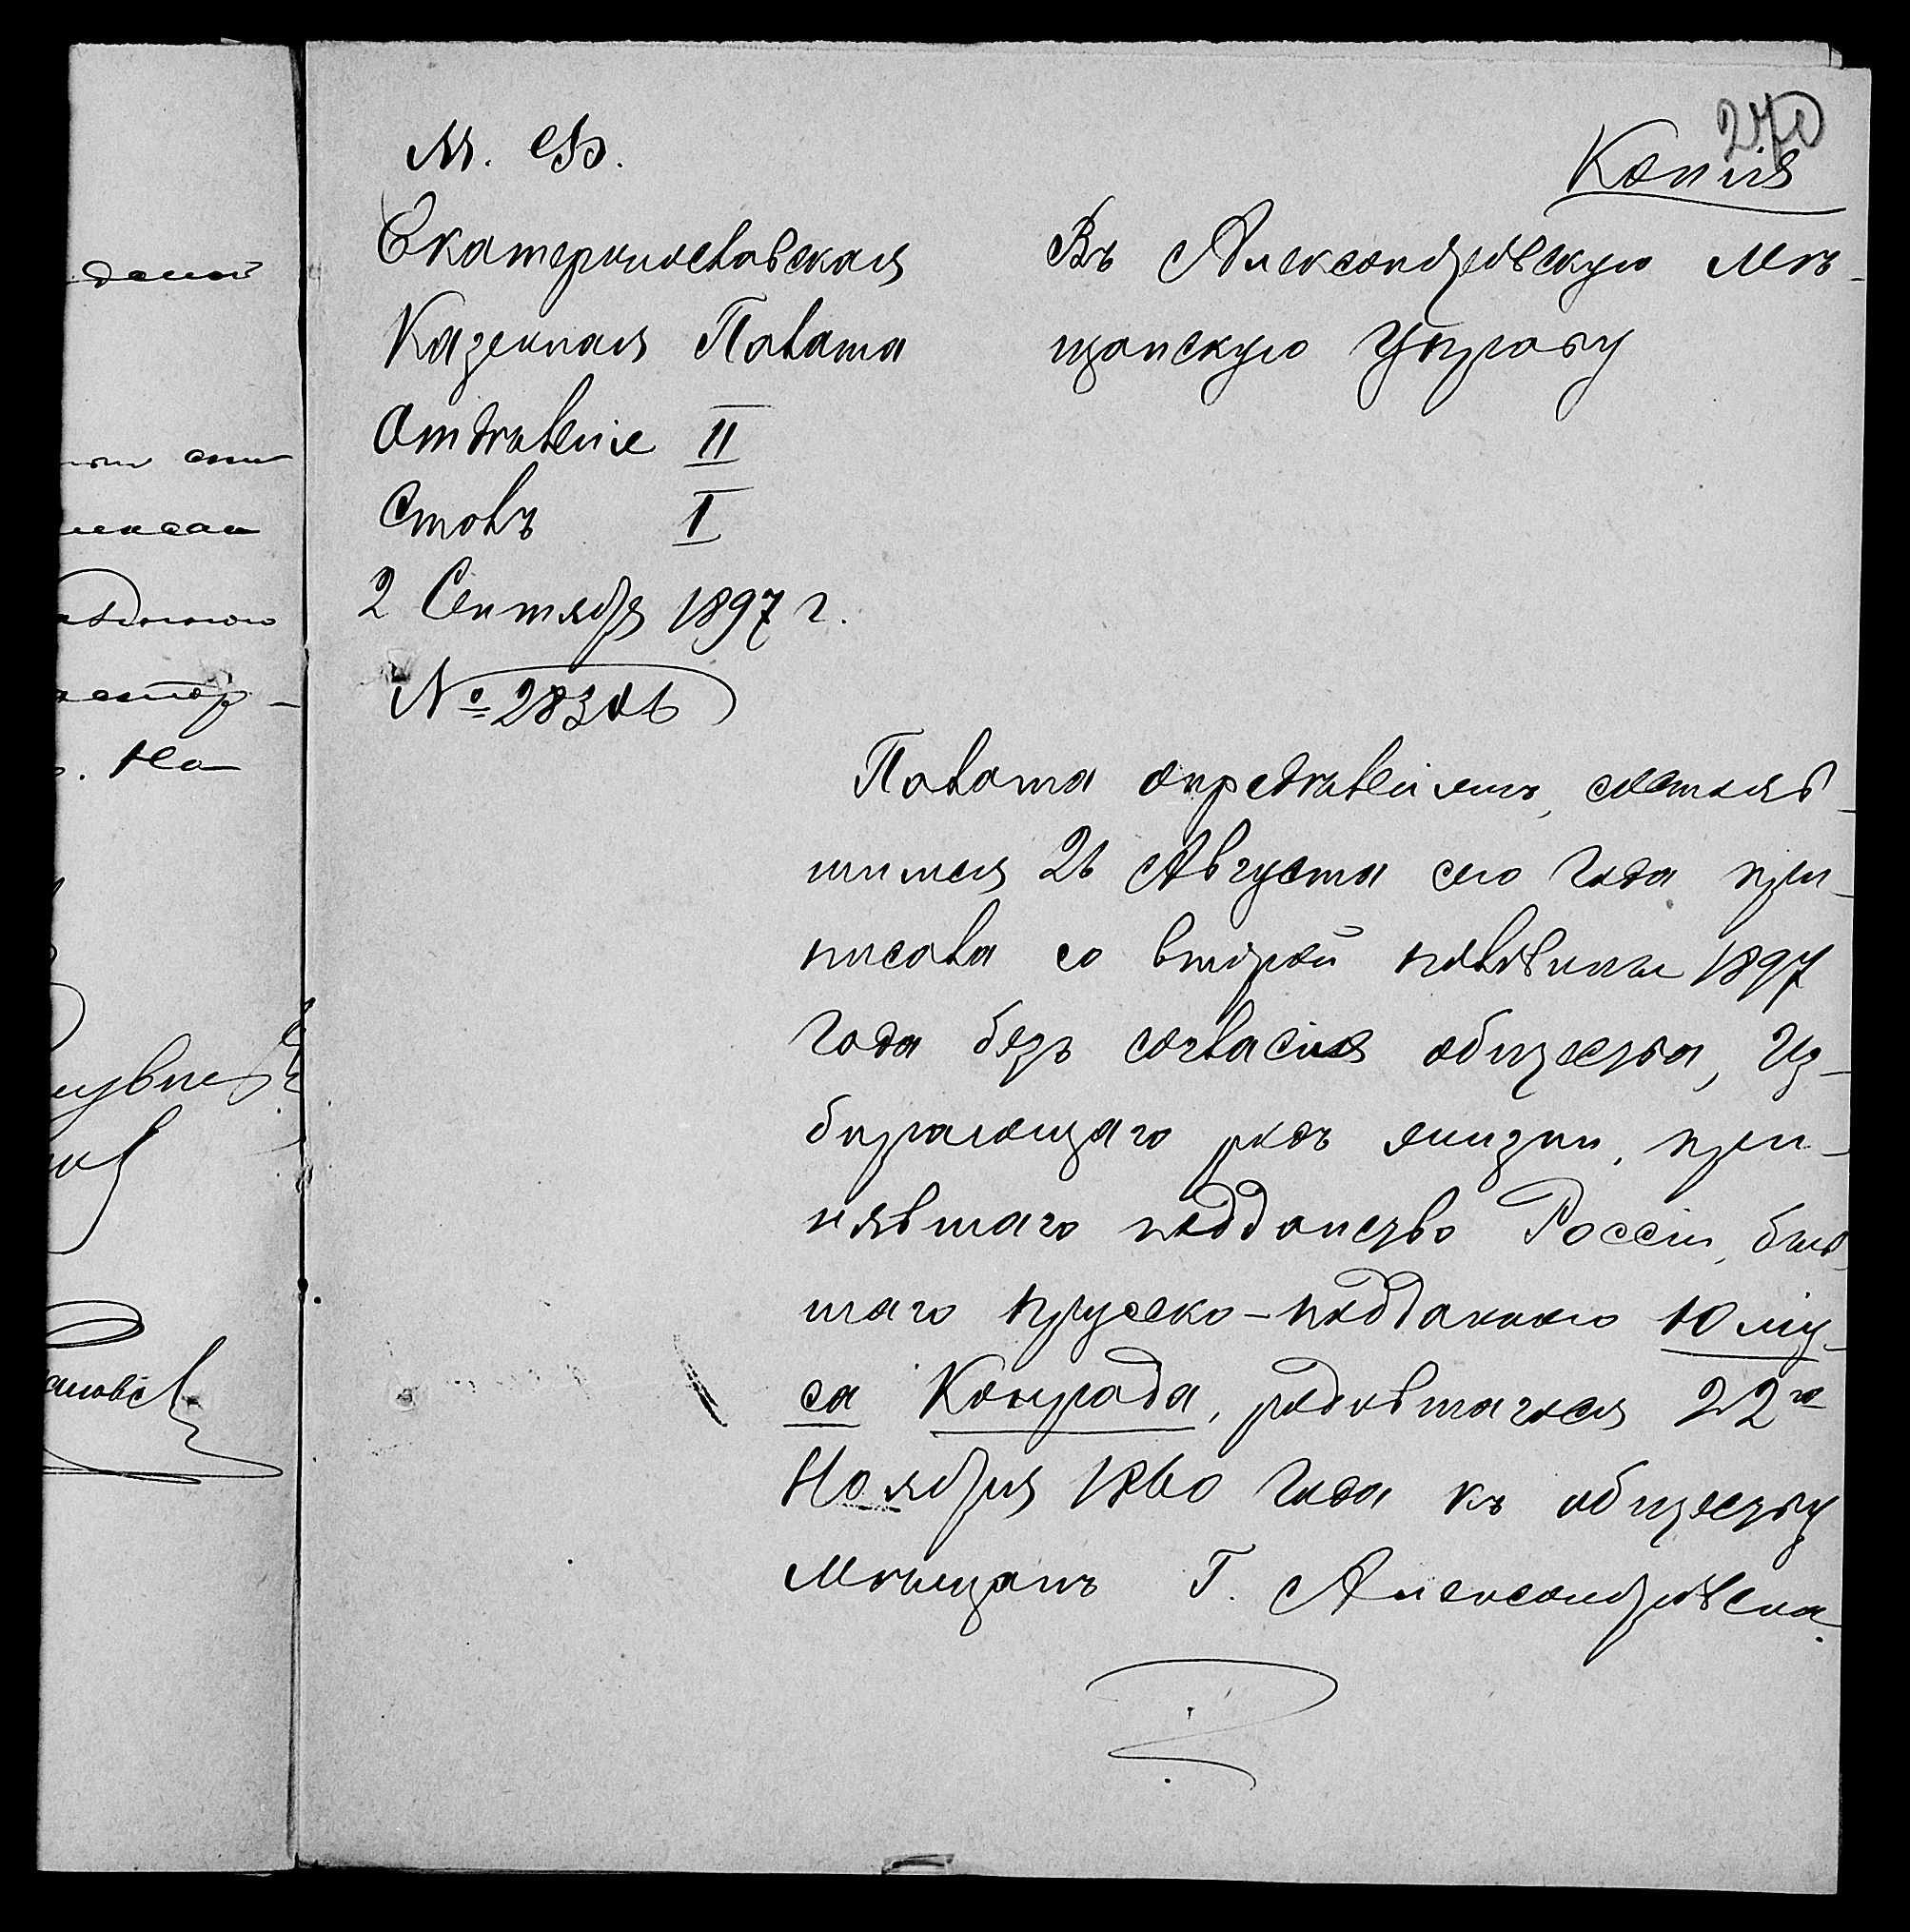 270
Копія
М. Ф.
Екатеринославская
Казенная Палата
Отдѣленіе II
Столъ I
2 Сентября 1897 г.
№ 28306
Въ Александровскую Мѣ-
щанскую Управу
Палата опредѣленіемъ, состояв-
шимся 26 Августа сего года, при-
писала со второй половины 1897
года безъ согласія общества, из-
бирающаго родъ жизни, при-
нявшаго подданство Россіи, быв-
шаго прусско-подданнаго Юліу-
са Конрада, родившагося 22го
Ноября 1860 года къ обществу
Мѣщанъ Г. Александровска.
. На